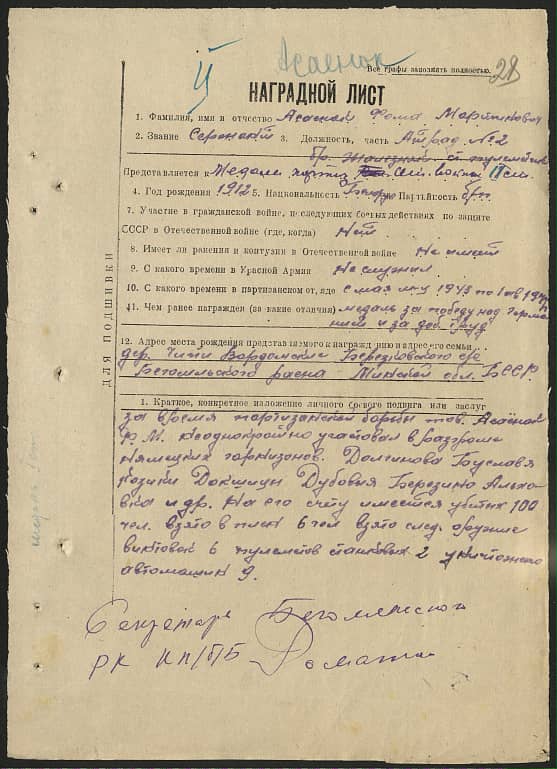 Асаёнок
Все графы заполнять полностью. 28
II
НАГРАДНОЙ ЛИСТ
1. Фамилия, имя и отчество Асаёнок Фома Мартинович
2. Звание 3. Должность, часть Атрад №2
бр. Железняк
Представляется к Медали партиз. II ст.
4. Год рождения 1912 5. Национальность Белорус Партийность б/п
7. Участие в гражданской войне, последующих боевых действиях по защите
СССР и Отечественной войне (где, когда) Нет
8. Имеет ли ранения и контузии в Отечественной войне Не имеет
9. С какого времени в Красной Армии Не служил
10. С какого времени в партизанском отряде с мая м-ца 1943 по
11. Чем ранее награжден (за какие отличия) медаль за победу над Герма
нией и за доб. труд
12. Адрес места рождения представляемого к награждению и адрес его семьи
дер. Березковского с/с
Бегомльского раена Минской обл. БССР.
ДЛЯ ПОДШИВКИ
1. Краткое, конкретное изложение личного боевого подвига или заслуг
за время партизанской борьбы тов. Асаёнок
Ф. М. неоднократно участвовал в разгроме
немецких гарнизонов. Долгинова
Докшицы Березино
и др. На его счету имеется убитых 100
чел. взято в плен 6 чел взято след. оружие
винтовок 6 пулеметов станковых 2 уничтожено
автомашин 9.
Секретарь Бегомльского
РК КП/б/Б